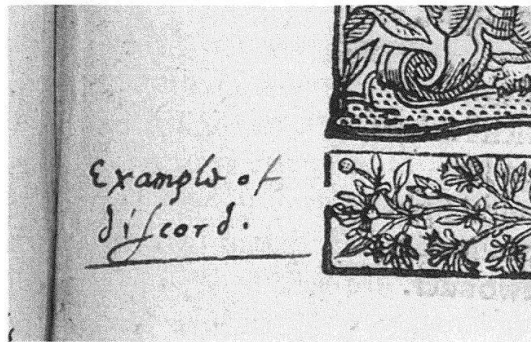 Example of
diſcord.